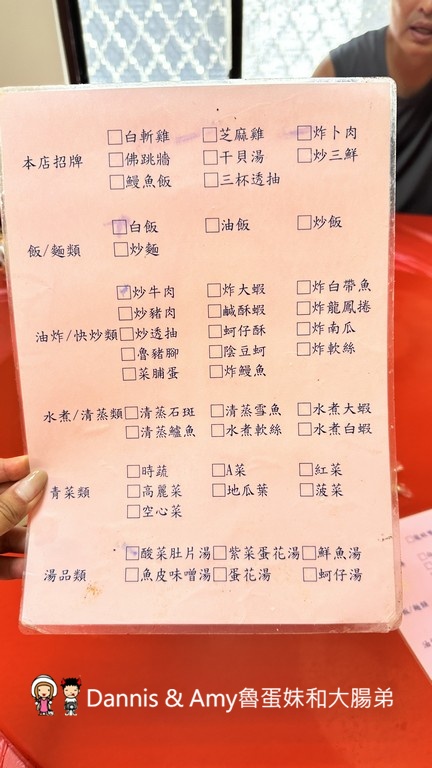 □白斬雞 □芝麻雞 □炸卜肉
本店招牌 □佛跳牆 □干貝湯 □炒三鮮
□鰻魚飯 □三杯透抽
□白飯 □油飯 □炒飯
飯/麵類 □炒麵
□炒牛肉 □炸大蝦 □炸白帶魚
□炒豬肉 □鹹酥蝦 □炸龍鳳捲
油炸/快炒類 □炒透抽 □蚵仔酥 □炸南瓜
□魯豬腳 □陰豆蚵 □炸軟絲
□菜脯蛋 □炸鰻魚
水煮/清蒸類 □清蒸石斑 □清蒸雪魚 □水煮大蝦
□清蒸鱸魚 □水煮軟絲 □水煮白蝦
□時蔬 □A菜 □紅菜
青菜類 □高麗菜 □地瓜葉 □菠菜
□空心菜
□酸菜肚片湯 □紫菜蛋花湯 □鮮魚湯
湯品類 □魚皮味噌湯 □蛋花湯 □蚵仔湯
Dannis & Amy魯蛋妹和大腸弟